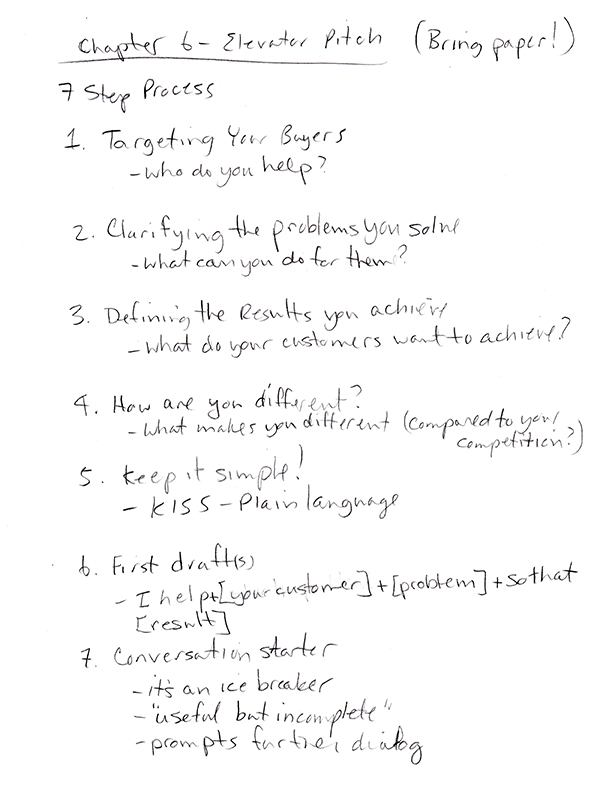 Chapter 6 - Elevator Pitch (Bring paper!)
7 Step Process
1. Targeting Your Buyers
- who do you help?
2. Clarifying the problems you solve
- what can you do for them?
3. Defining the Results you achieve
- what do your customers want to achieve?
4. How are you different?
- what makes you different (compared to your
competition?)
5. Keep it simple!
- KISS - Plain language
6. First draft(s)
- I help+[your customer]+[problem]+so that
[result]
7. Conversation starter
- it's an ice breaker
- "useful but incomplete"
- prompts further dialog